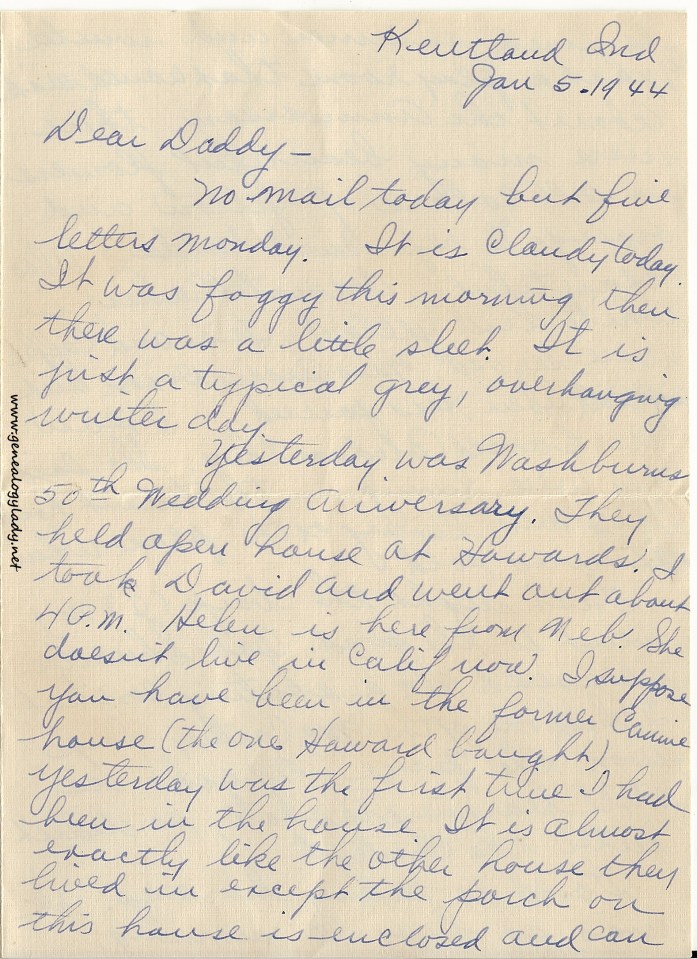 Kentland Ind
Jan 5. 1944
Dear Daddy –
No mail today but five
letters Monday. It is Cloudy today.
It was foggy this morning, then
there was a little sleet. It is
just a typical grey, overhanging
winter day.
Yesterday was Washburns
50th Wedding Aniversary. They
held open house at Howards. I
took David and went out about
4 P.M. Helen is here from Neb. She
doesn't live in Calif now. I suppose
you have been in the former
house (the one Howard bought)
yesterday was the first time I had
been in the house. It is almost
exactly like the other house they
lived in except the porch on
this house is enclosed and can
www.genealogylady.net